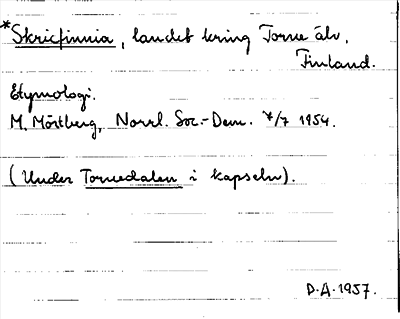 *Skricfinnia, landet kring Torne älv,
Finland.
Etymologi.
M. Mörtberg, Norrl. Soc.-Dem. 7/7 1954.
(Under Tornedalen i kapseln).
D.A. 1957.